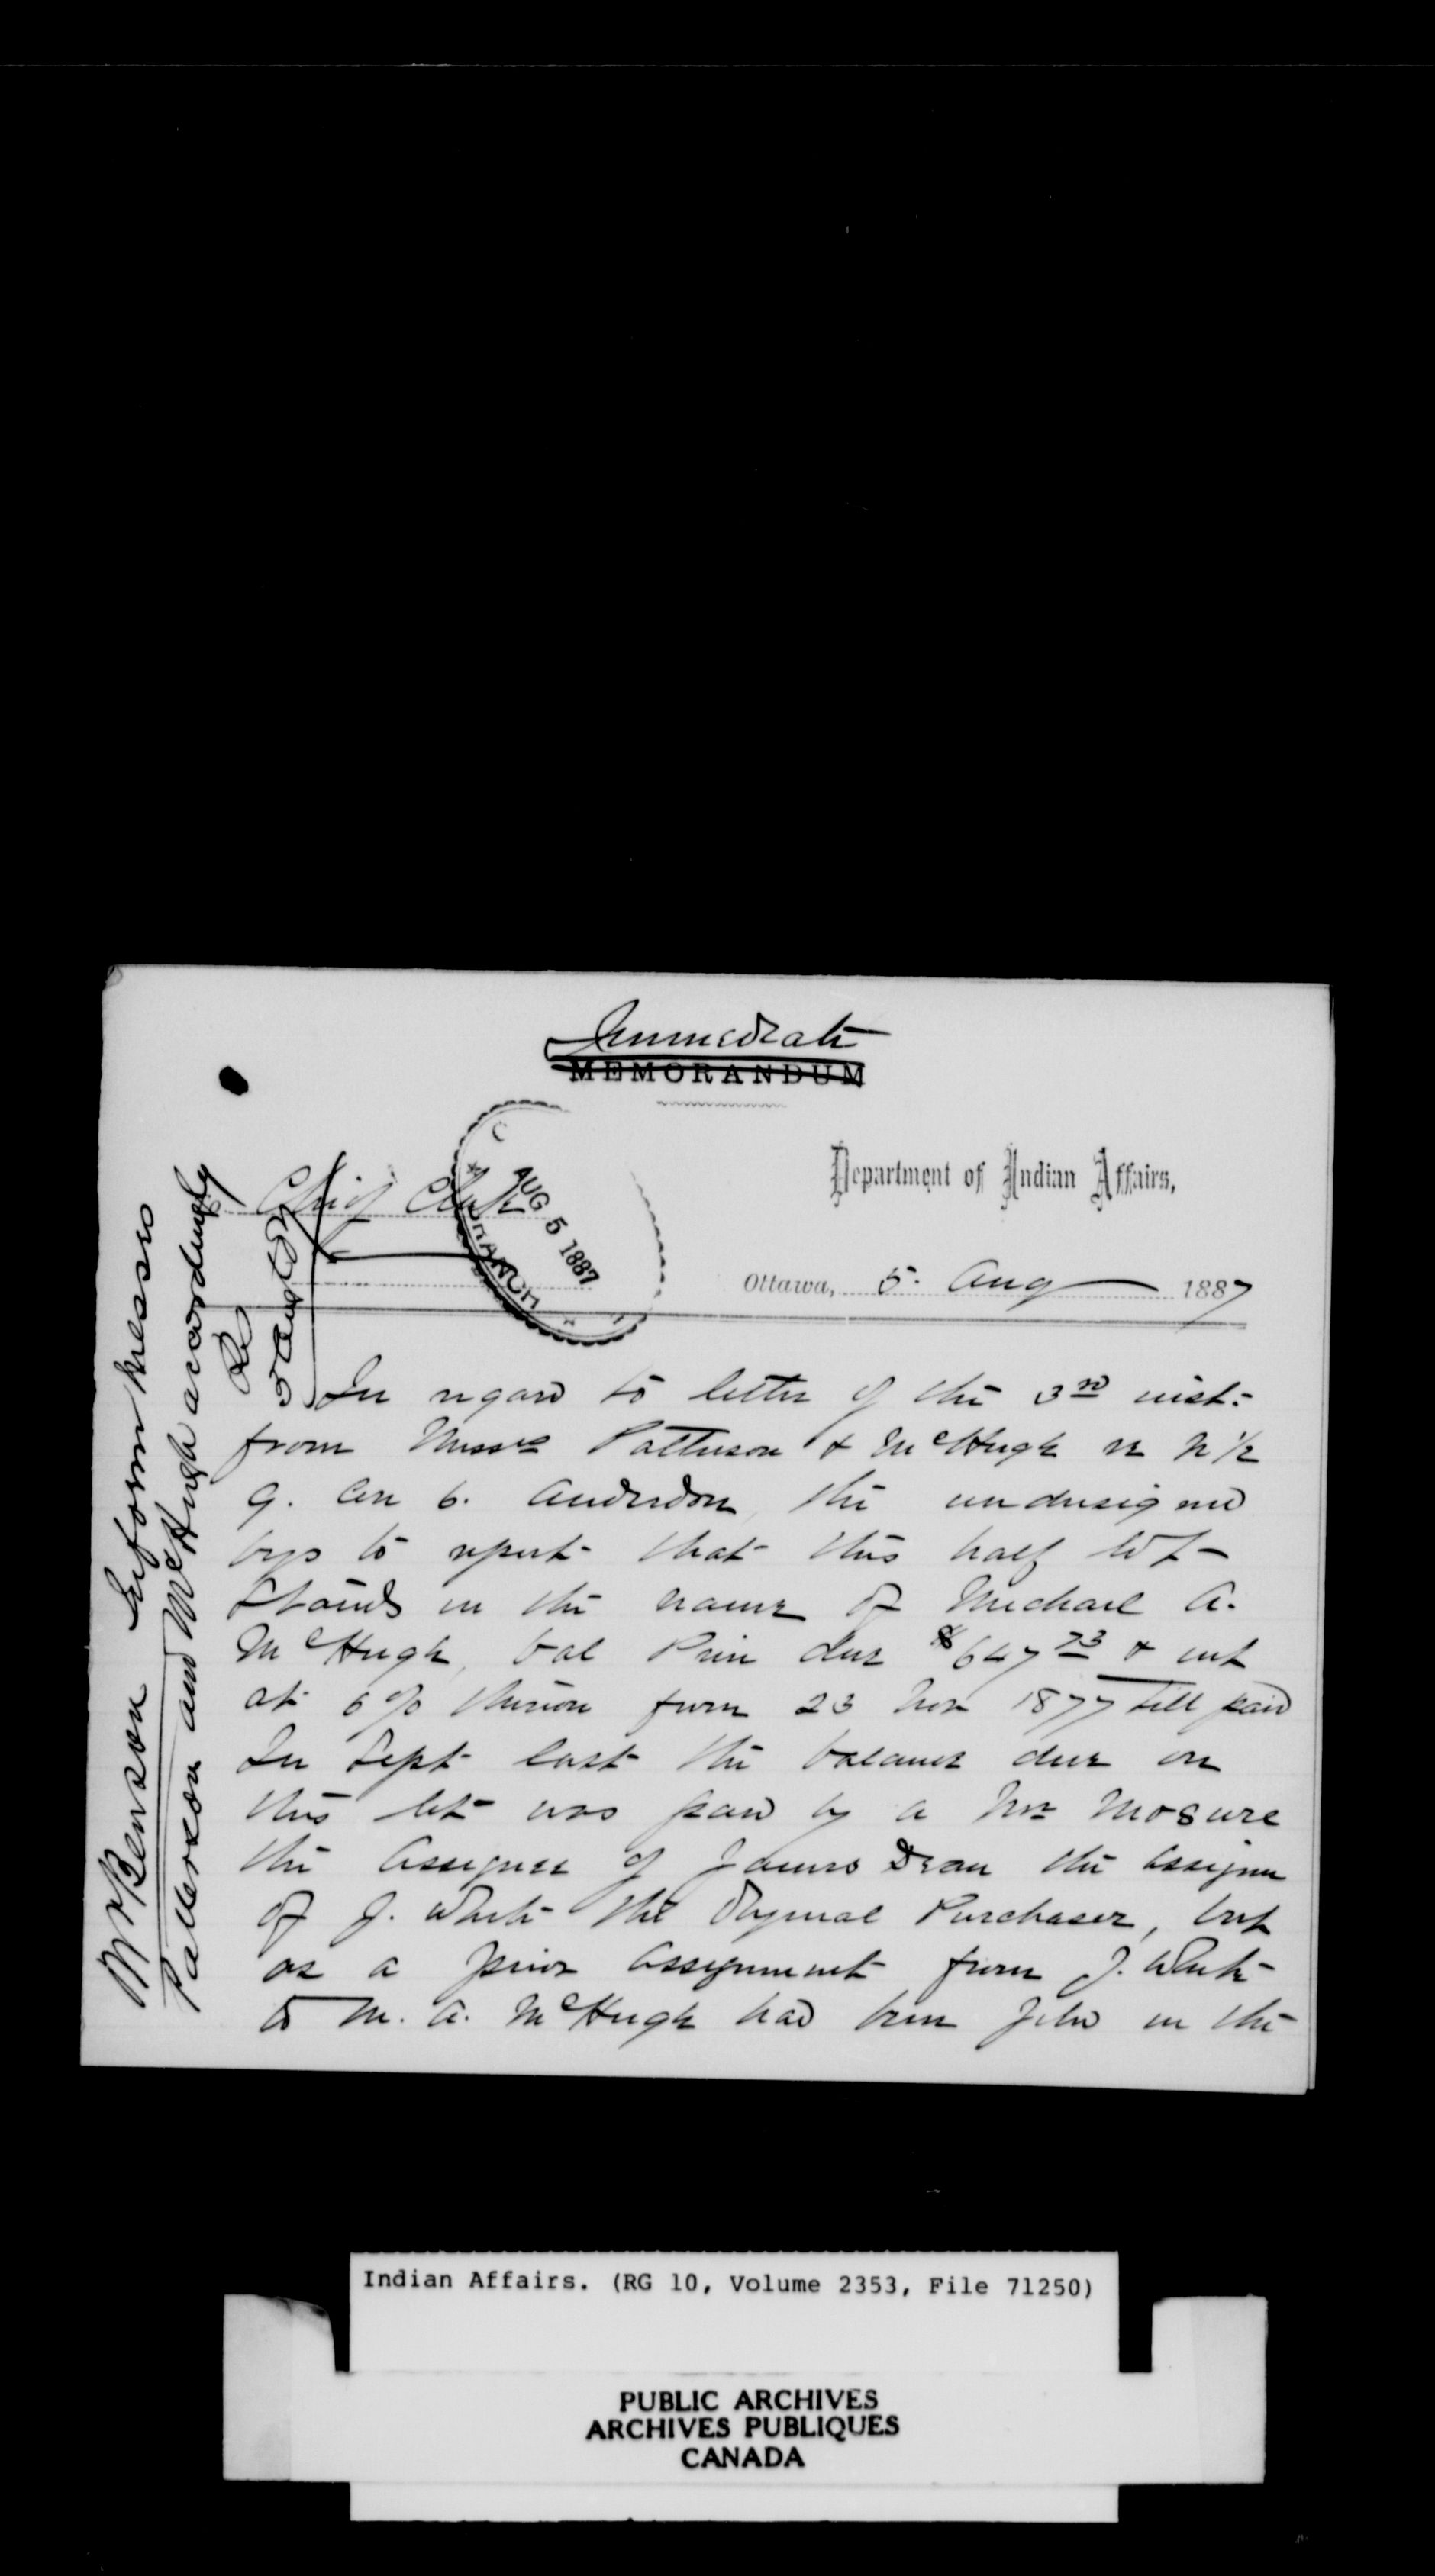 Immediate
MEMORANDUM
Department of Indian Affairs,
Chief Clerk
AUG 5 1887
BRANCH
Ottawa, 5. Aug 1887
In regard to letter of the 3rd inst:
from Messrs Patterson & McHugh re N 1/2
9. Con 6. Anderdon, the undersigned
begs to report that this half lot
stands in the name of Michael A.
McHugh, bal Prin due $647 73 & int
at 6 % thereon from 23 Nov 1877 till paid
In Sept last the balance due on
this lot was paid by a Mr Mosure
the assignee of James Dean the assignee
of J. White the Original Purchaser, but
as a prior assignment from J. White
to M. A. McHugh had been filed in the
Mr Benson Inform Messrs
Patterson and McHugh accordingly
5 Aug 87
Indian Affairs. (RG 10, Volume 2353, File 71250)
PUBLIC ARCHIVES
ARCHIVES PUBLIQUES
CANADA